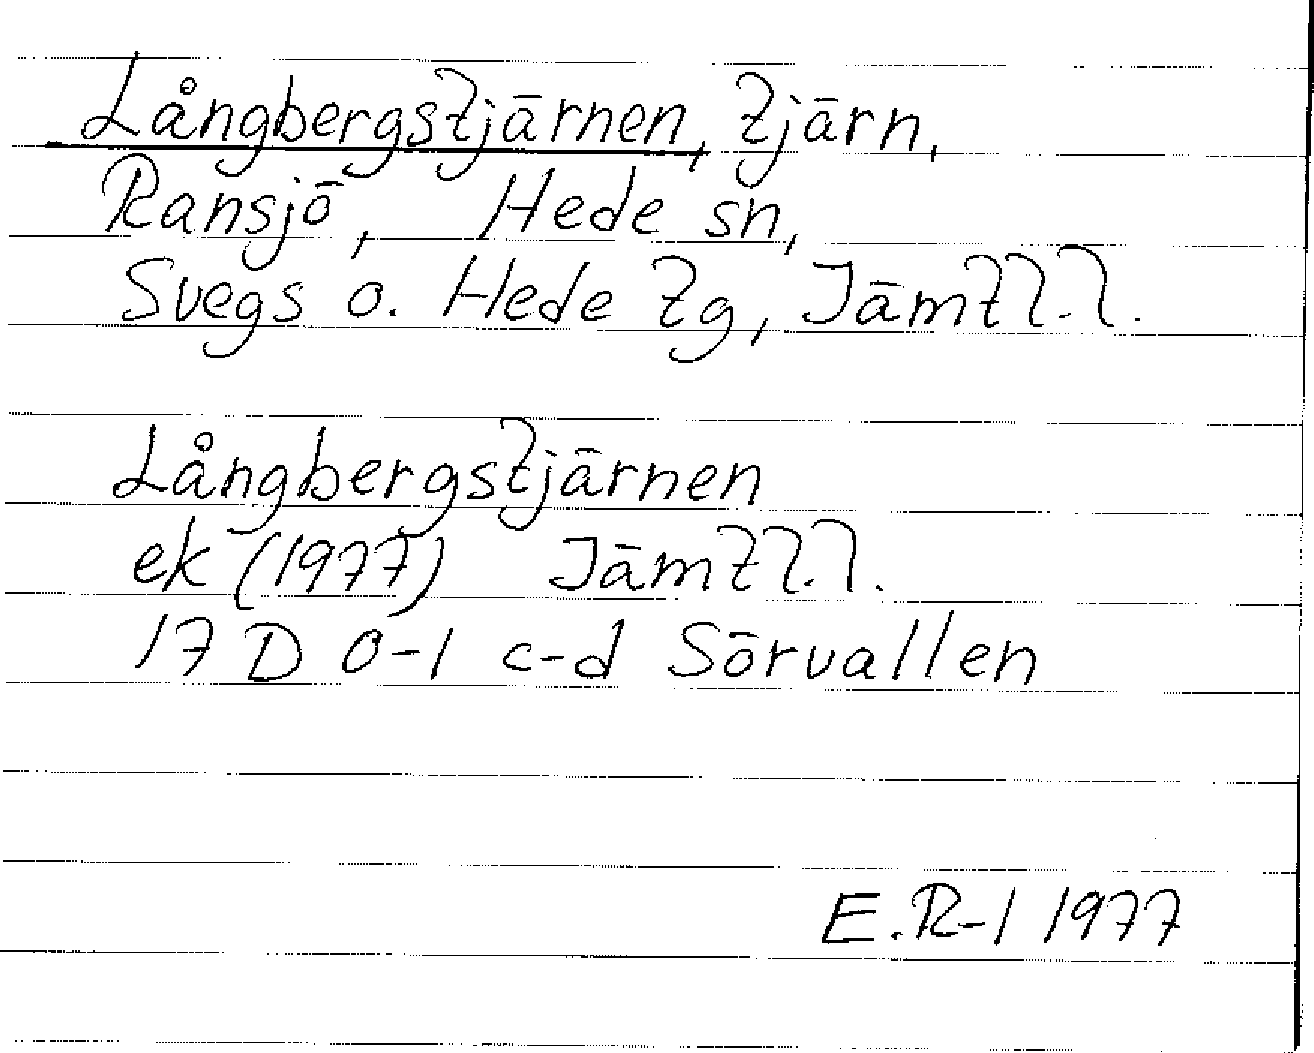 Långbergstjärnen, tjärn,
Ransjö, Hede sn,
Svegs o. Hede tg, Jämtl. l.
Långbergstjärnen
ek (1977) Jämtl. l.
17 D 0-1 c-d Sörvallen
E.R-l 1977